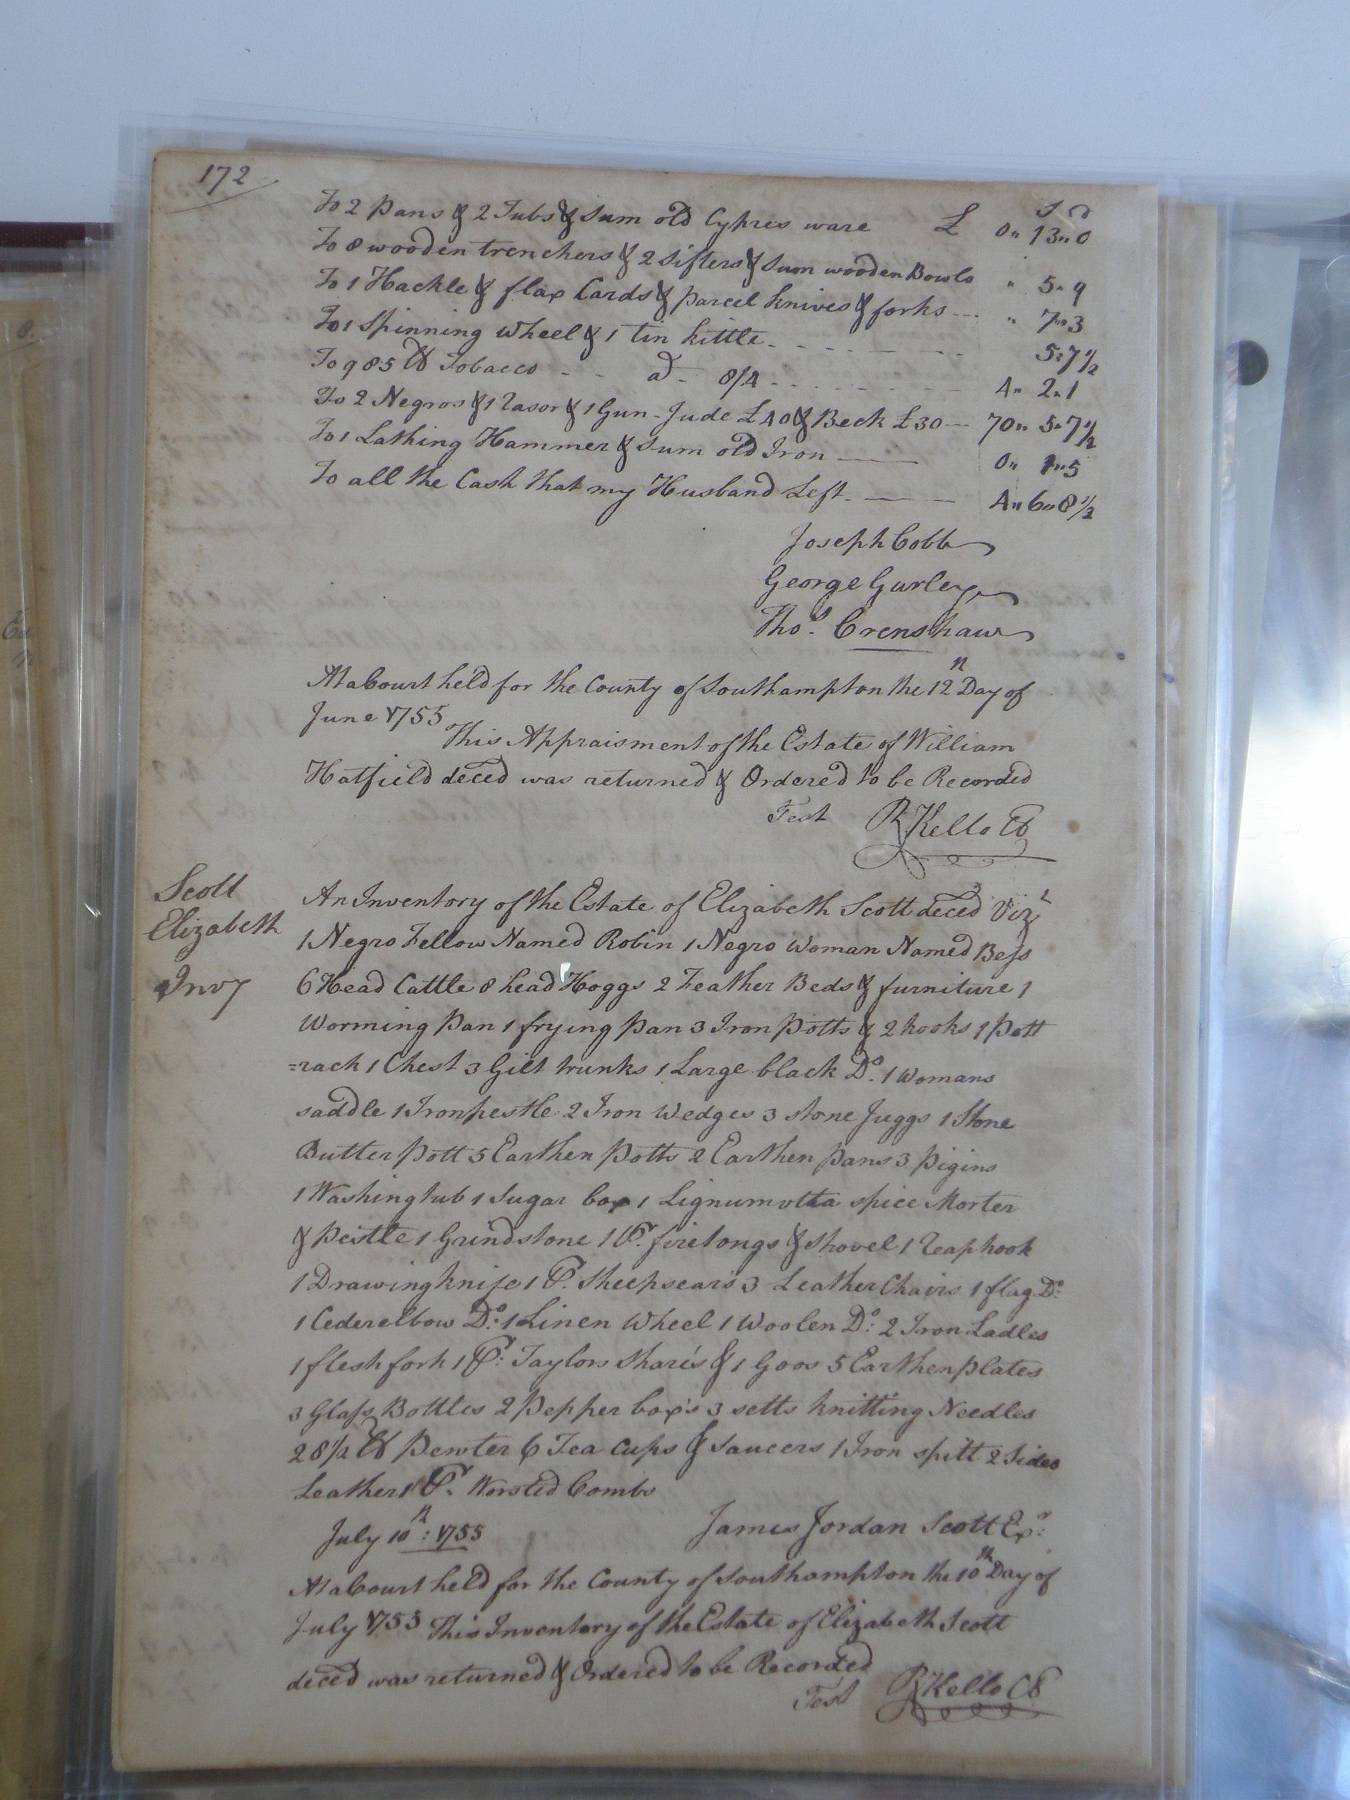 172
s d
To 2 pans & 2 Tubs & Sum old Cypres ware £ 0,, 13,, 0
To 8 wooden trenchers & 2 Sifters & Sum wooden Bowls ,, 5,, 9
To 1 Hackle & flax Cards & parcel knives & forks ,, 7,, 3
To 1 Spinning Wheel & 1 tin kittle 5,, 7 1/2
To 985 lb Tobacco ad 8/4 4,, 2,, 1
To 2 Negros & 1 Rasor & 1 Gun - Jude £40 & Beck £30 70,, 5,, 7 1/2
To 1 Lathing Hammer & Sum old Iron 0,, 1,, 5
To all the Cash that my Husband Left 4,, 6,, 8 1/2
Joseph Cobb
George Gurley
Thos. Crenshaw
At a Court held for the County of Southampton the 12th Day of
June 1755
This Appraisment of the Estate of William
Hatfield deced was returned & Ordered to be Recorded
Test R Kello CC
Scott
Elizabeth
Invy
An Inventory of the Estate of Elizabeth Scott deced Vizt
1 Negro Fellow Named Robin 1 Negro Woman Named Bess
6 Head Cattle 8 head Hoggs 2 Feather Beds & furniture 1
Worming pan 1 frying pan 3 Iron potts & 2 hooks 1 pott
=rack 1 Chest 3 Gilt trunks 1 Large black Do. 1 womans
saddle 1 Iron pestle 2 Iron Wedges 3 stone Juggs 1 Stone
Butter pott 5 Earthen potts 2 Earthen pans 3 pigins
1 Washing tub 1 Sugar box 1 Lignumvitta spice Morter
& pestle 1 Grindstone 1 Pr. firetongs & shovel 1 reaphook
1 Drawing knife 1 Pr. Sheepsears 3 Leather Chairs 1 flag Do:
1 Cederelbow Do: 1 Linen Wheel 1 Woolen Do: 2 Iron Ladles
1 flesh fork 1 Pr: Taylors shares & 1 Goos 5 Earthen plates
3 Glass Bottles 2 Pepper box's 3 setts knitting Needles
28 1/2 lb pewter 6 Tea Cups & saucers 1 Iron spitt 2 Sides
Leather 1 Pr. Worsted Combs
July 10th: 1755 James Jordan Scott Exr:
At a Court held for the County of Southampton the 10th Day of
July 1755 This Inventory of the Estate of Elizabeth Scott
deced was returned & Ordered to be Recorded
Test R Kello CC